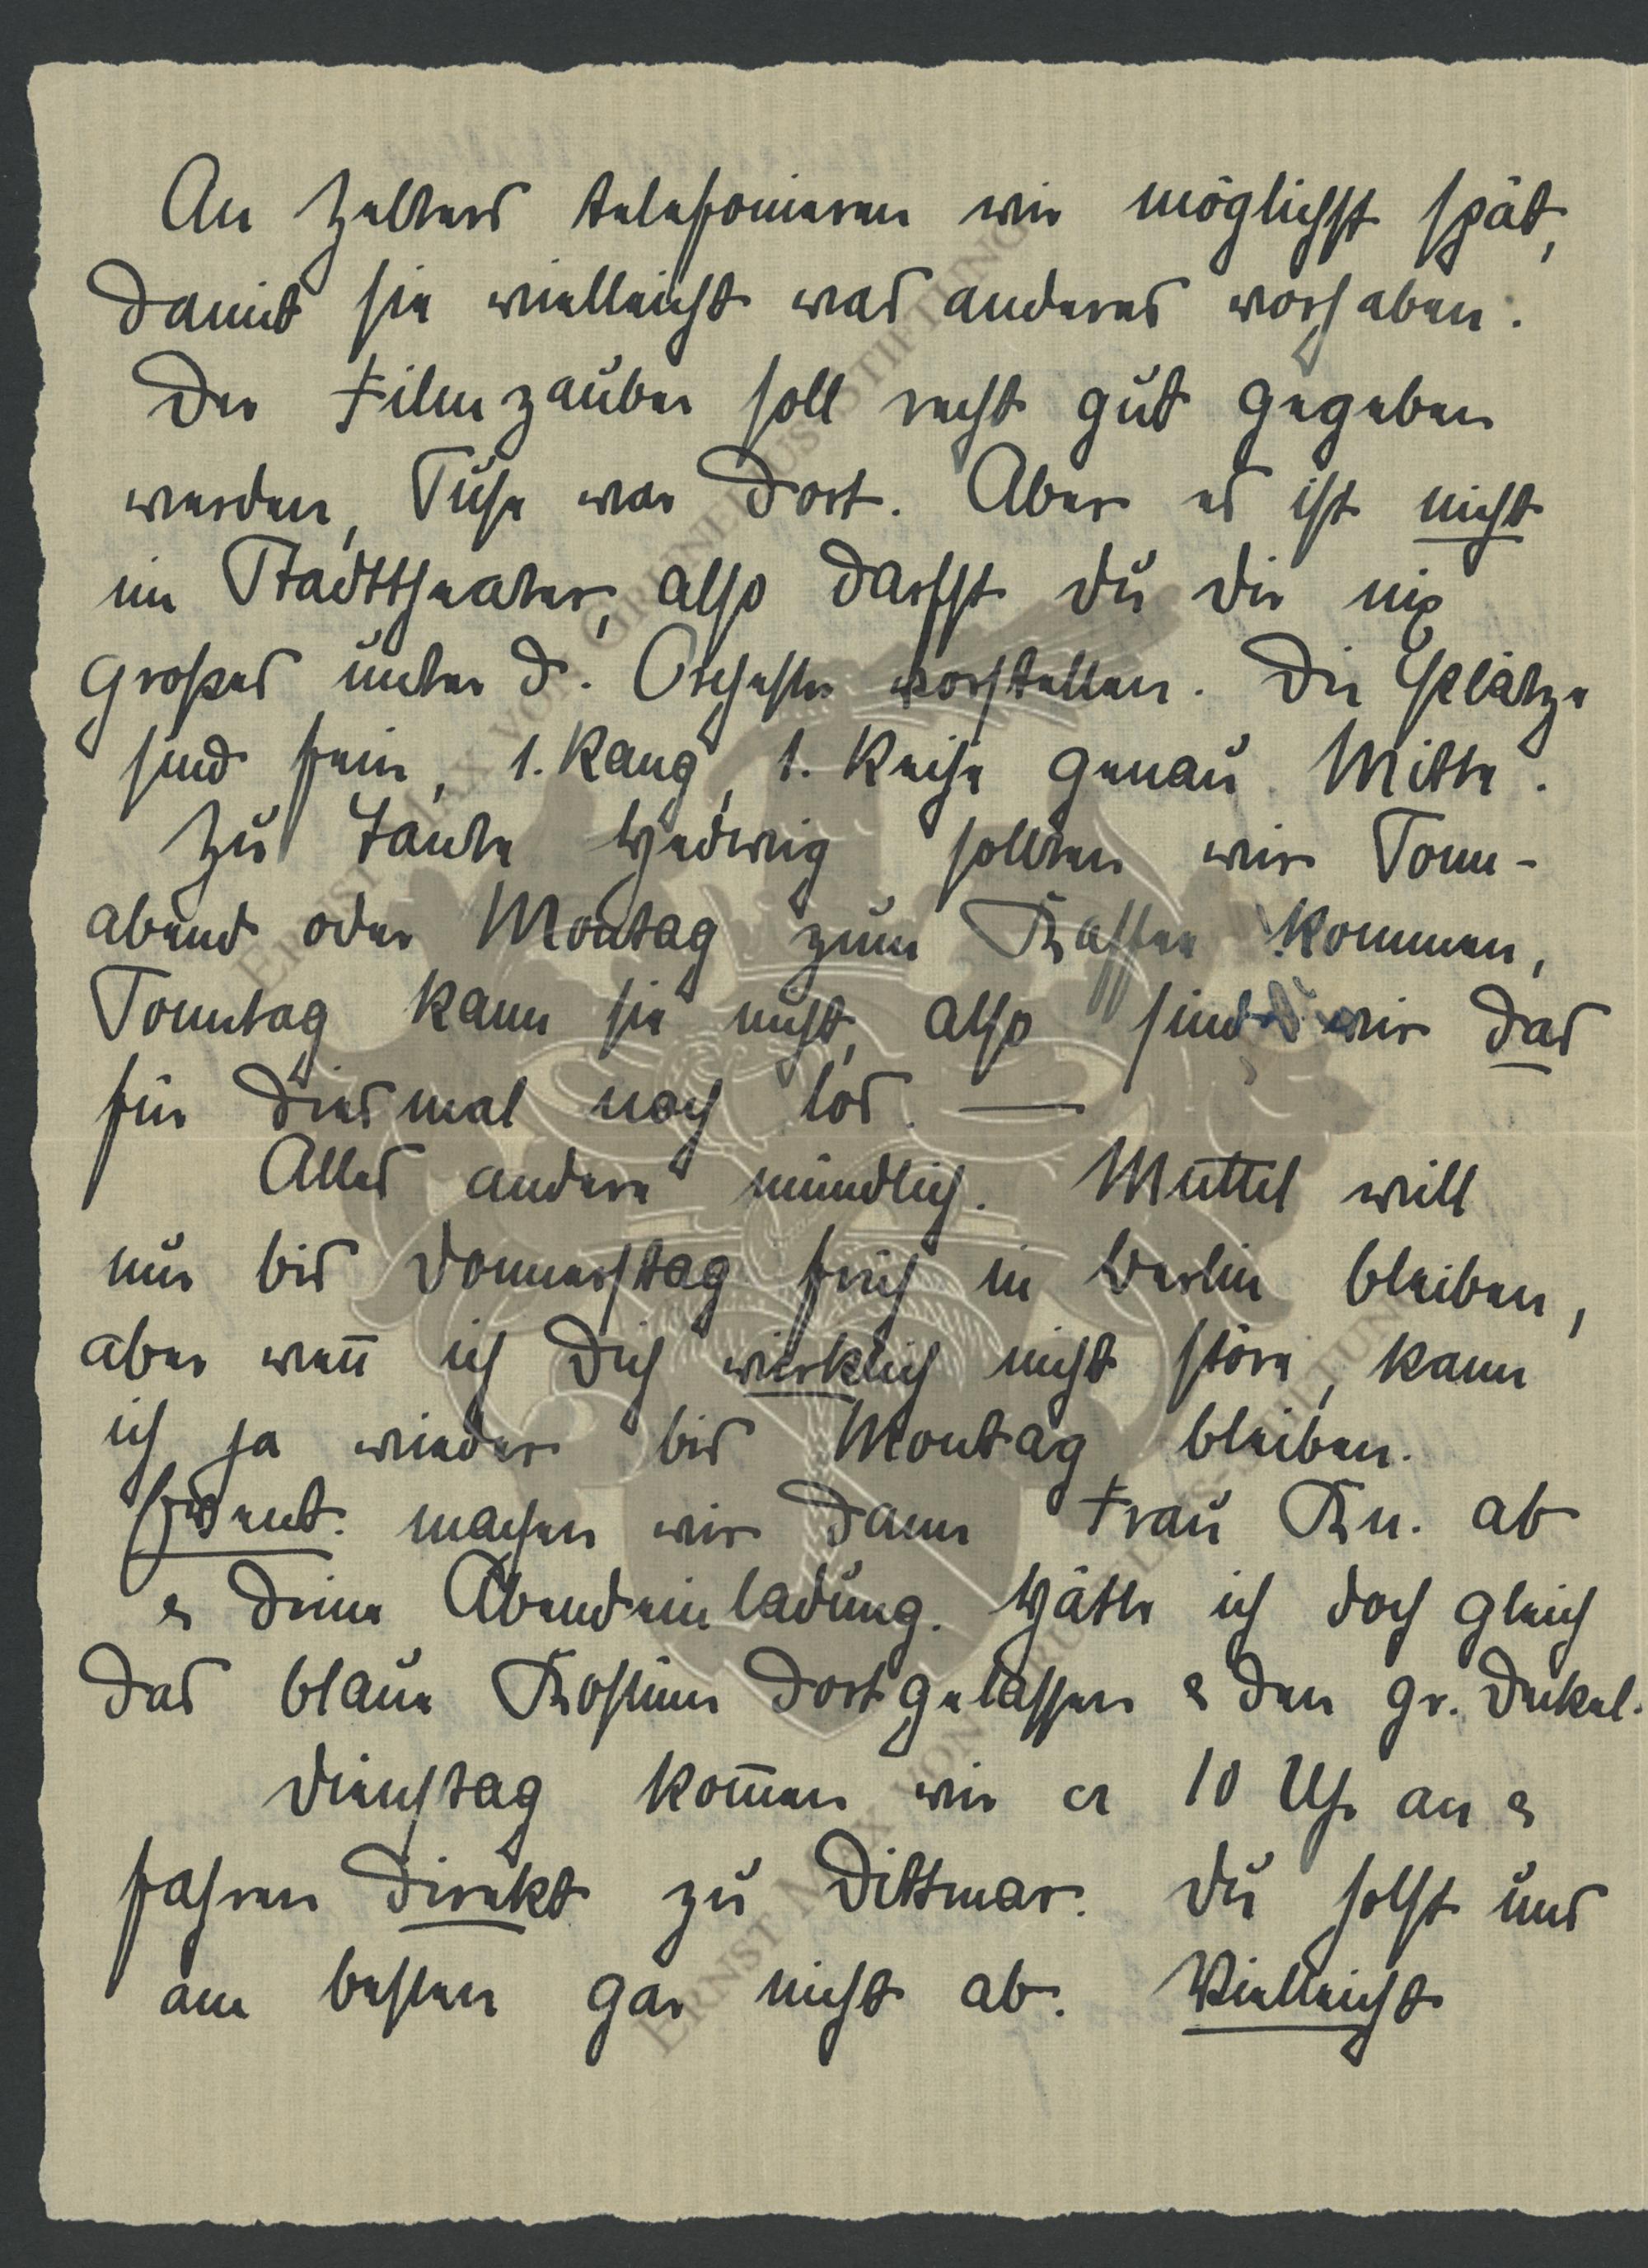 An Zelters telefonieren wir möglichst spät,
damit sie vielleicht was anderes vorhaben.
Der Filmzauber soll recht gut gegeben
werden, Suse war dort. Aber es ist nicht
im Stadttheater, also darfst Du Dir nix
Großes unter d. Orchester vorstellen. Die Plätze
sind fein, 1. Rang, 1. Reihe genau Mitte.
Zu Tante Hedwig sollten wir Sonn-
abend oder Montag zum Kaffee kommen,
Sonntag kann sie nicht, also sind wir das
für diesmal noch los. —
Alles andere mündlich. Muttel will
nur bis Donnerstag früh in Berlin bleiben,
aber wen̄ ich Dich wirklich nicht störe, kann
ich ja wieder bis Montag bleiben.
Event. machen wir dann Frau Kn. ab
& Deine Abendeinladung. Hätte ich doch gleich
das blaue Kostüm dortgelassen & den gr. Deckel.
Dienstag kom̄en wir ca 10 Uhr an &
fahren direkt zu Dittmar. Du holst uns
am besten gar nicht ab. Vielleicht
ERNST MAX VON GRUNELIUS-STIFTUNG
ERNST MAX VON GRUNELIUS-STIFTUNG